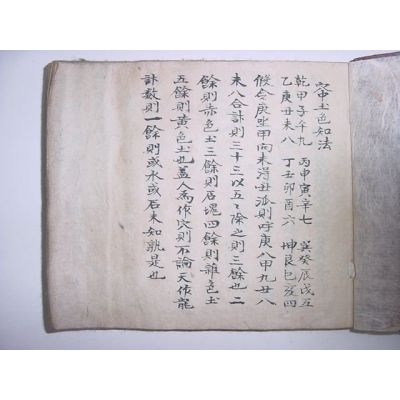 穴中土色知法
乾甲子午九 丙申寅辛七 巽癸辰戌五
乙庚丑未八 丁壬卯酉六 坤艮巳亥四
假令庚坐甲向未得丑派則呼庚八甲九丑八
未八合計則三十三以五々除之則三餘也二
餘則赤色土三餘則石塊四餘則雜色土
五餘則黃色土也盖人爲作穴則不論天作龍
計数則一餘則或水或石未知孰是也